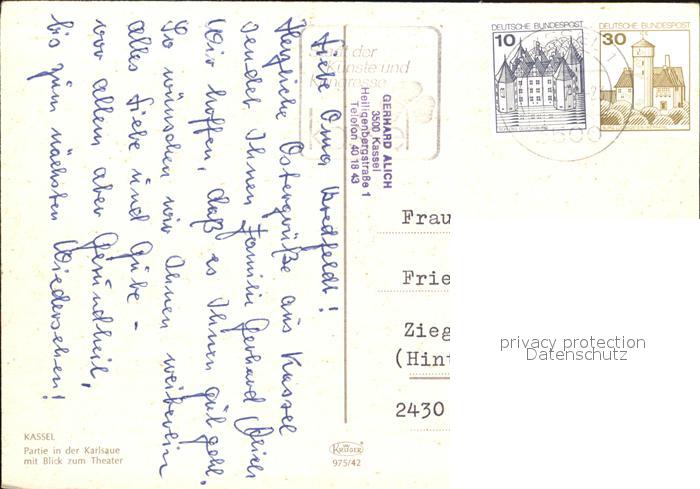 Liebe Oma Bredfeldt!
Herzliche Ostergrüße aus Kassel
sendet Ihnen Familie Gerhard Alich
Wir hoffen, daß es Ihnen gut geht.
So wünschen wir Ihnen weiterhin
alles Liebe und Gute –
vor allem aber Gesundheit,
bis zum nächsten Wiedersehen!
KASSEL
Partie in der Karlsaue
mit Blick zum Theater
Stadt der
Künste und
Kongresse
kassel
GERHARD ALICH
3500 Kassel
Heiligenbergstraße 1
Telefon 40 18 43
KRÜGER
975/42
DEUTSCHE BUNDESPOST
10
DEUTSCHE BUNDESPOST
30
Frau
Frie
Zieg
(Hint
2430
privacy protection
Datenschutz